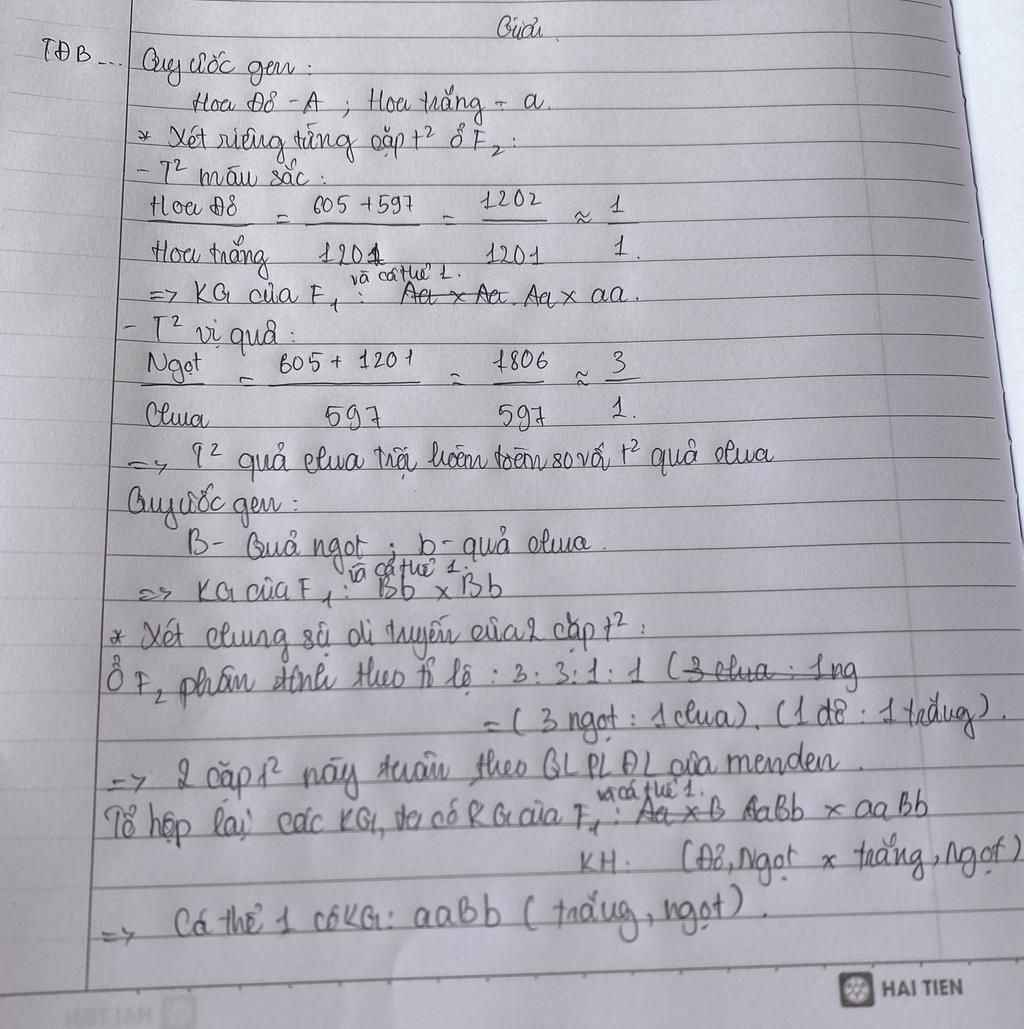 Giải.
TĐB... Quy ước gen:
Hoa Đỏ - A ; Hoa trắng - a.
* Xét riêng từng cặp t² ở F₂:
- T² màu sắc:
Hoa Đỏ / Hoa trắng = 605 + 597 / 1201 = 1202 / 1201 ≈ 1 / 1.
và cá thể 1.
=> KG của F₁ : Aa x Aa. Aa x aa.
- T² vị quả:
Ngọt / Chua = 605 + 1201 / 597 = 1806 / 597 ≈ 3 / 1.
=> T² quả chua trội hoàn toàn so với t² quả chua
Quy ước gen:
B- Quả ngọt ; b- quả chua.
và cá thể 1.
=> KG của F₁ : Bb x Bb
* Xét chung sự di truyền của 2 cặp t²:
Ở F₂ phân tính theo tỉ lệ : 3 : 3 : 1 : 1 (3 chua : 1ng
= (3 ngọt : 1 chua). (1 đỏ : 1 trắng).
=> 2 cặp t² này tuân theo QL PLĐL của menden.
và cá thể 1.
Tổ hợp lại các KG, ta có KG của F₁ : Aa x B AaBb x aaBb
KH: (Đỏ, Ngọt x trắng, Ngọt)
=> Cá thể 1 có KG: aaBb (trắng, ngọt).
HAI TIEN